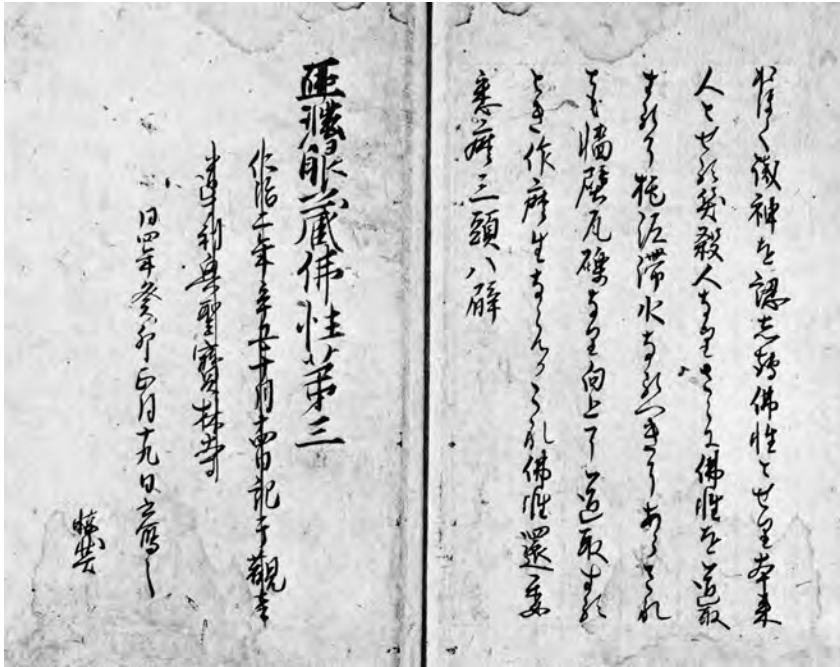 おほく識神を認して佛性とせり本来
人とせる笑殺人なりさらに佛性を道取
するに拕泥滞水なるへきにあらされ
とも牆壁瓦礫なり向上に道取する
とき作麼生ならんかこれ佛性還委
悉麼三頭八臂
正法眼蔵佛性第三
仁治二年辛丑十月十四日記于觀音
導利興聖寶林寺
同四年癸卯正月十九日書寫之
懷弉